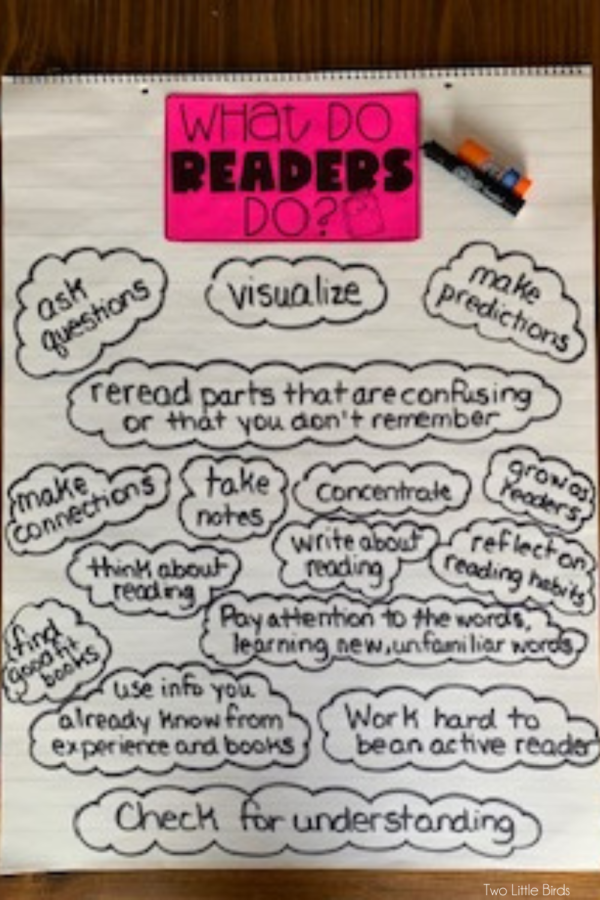 WHAT DO
READERS
DO?
ask
questions
visualize
make
predictions
reread parts that are confusing
or that you don't remember
make
connections
take
notes
concentrate
grow as
readers
think about
reading
write about
reading
reflect on
reading habits
find
good fit
books
Pay attention to the words,
learning new, unfamiliar words
use info you
already know from
experience and books
Work hard to
be an active reader
Check for understanding
Two Little Birds